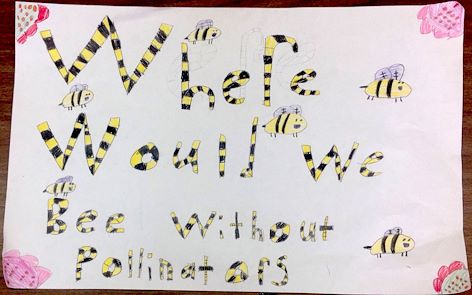 Where
Would We
Bee Without
Pollinators